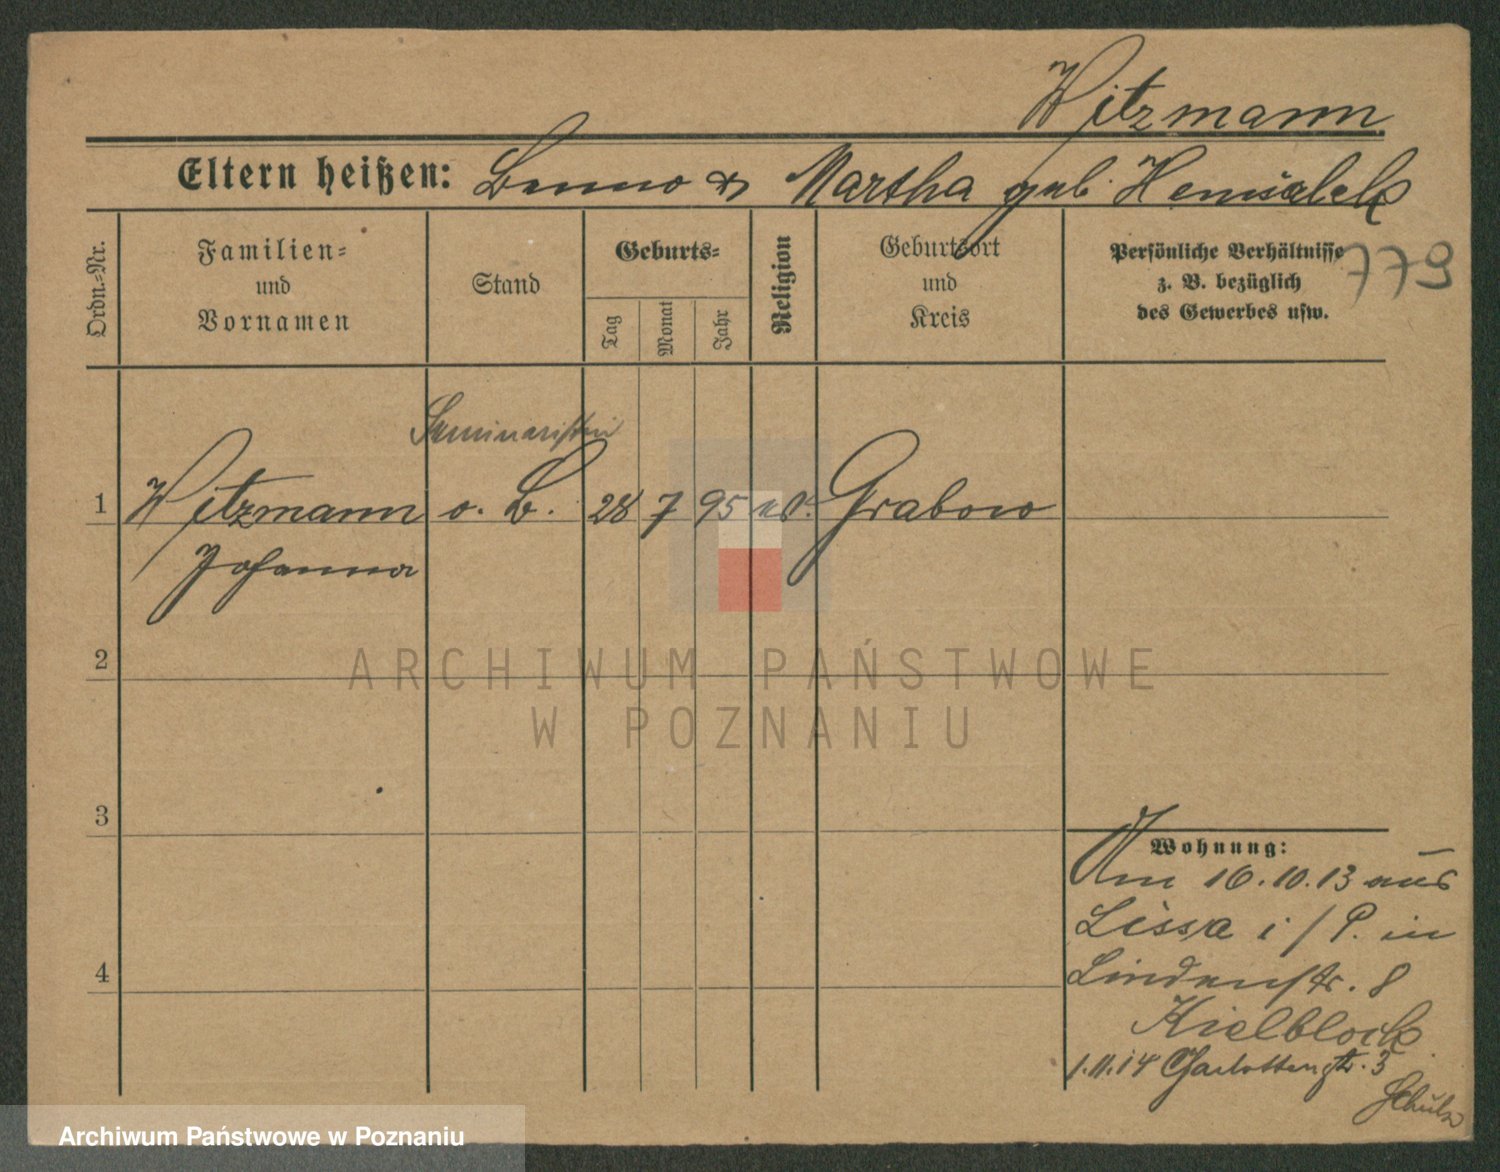 Witzmann
Eltern heißen: Benno & Martha geb. Hemsalek
779
Ordn.-Nr.
Familien-
und
Vornamen
Stand
Geburts-
Tag
Monat
Jahr
Religion
Geburtsort
und
Kreis
Persönliche Verhältnisse
z. B. bezüglich
des Gewerbes usw.
Seminaristin
1 Witzmann o. B. 28 7 95 Grabow
Johanna
2
3
4
Wohnung:
Am 16.10.13 aus
Lissa i/P. in
Lindenstr. 8
Kielblock
1.11.14 Charlottenstr. 3
Schulz
ARCHIWUM PAŃSTWOWE
W POZNANIU
Archiwum Państwowe w Poznaniu